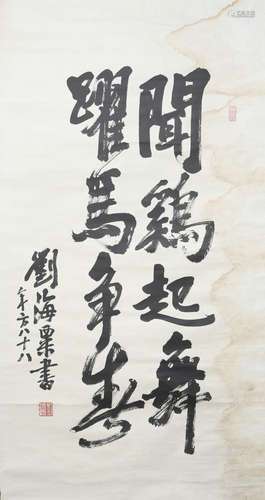 聞鷄起舞
躍馬争春
劉海粟書
年方八十八